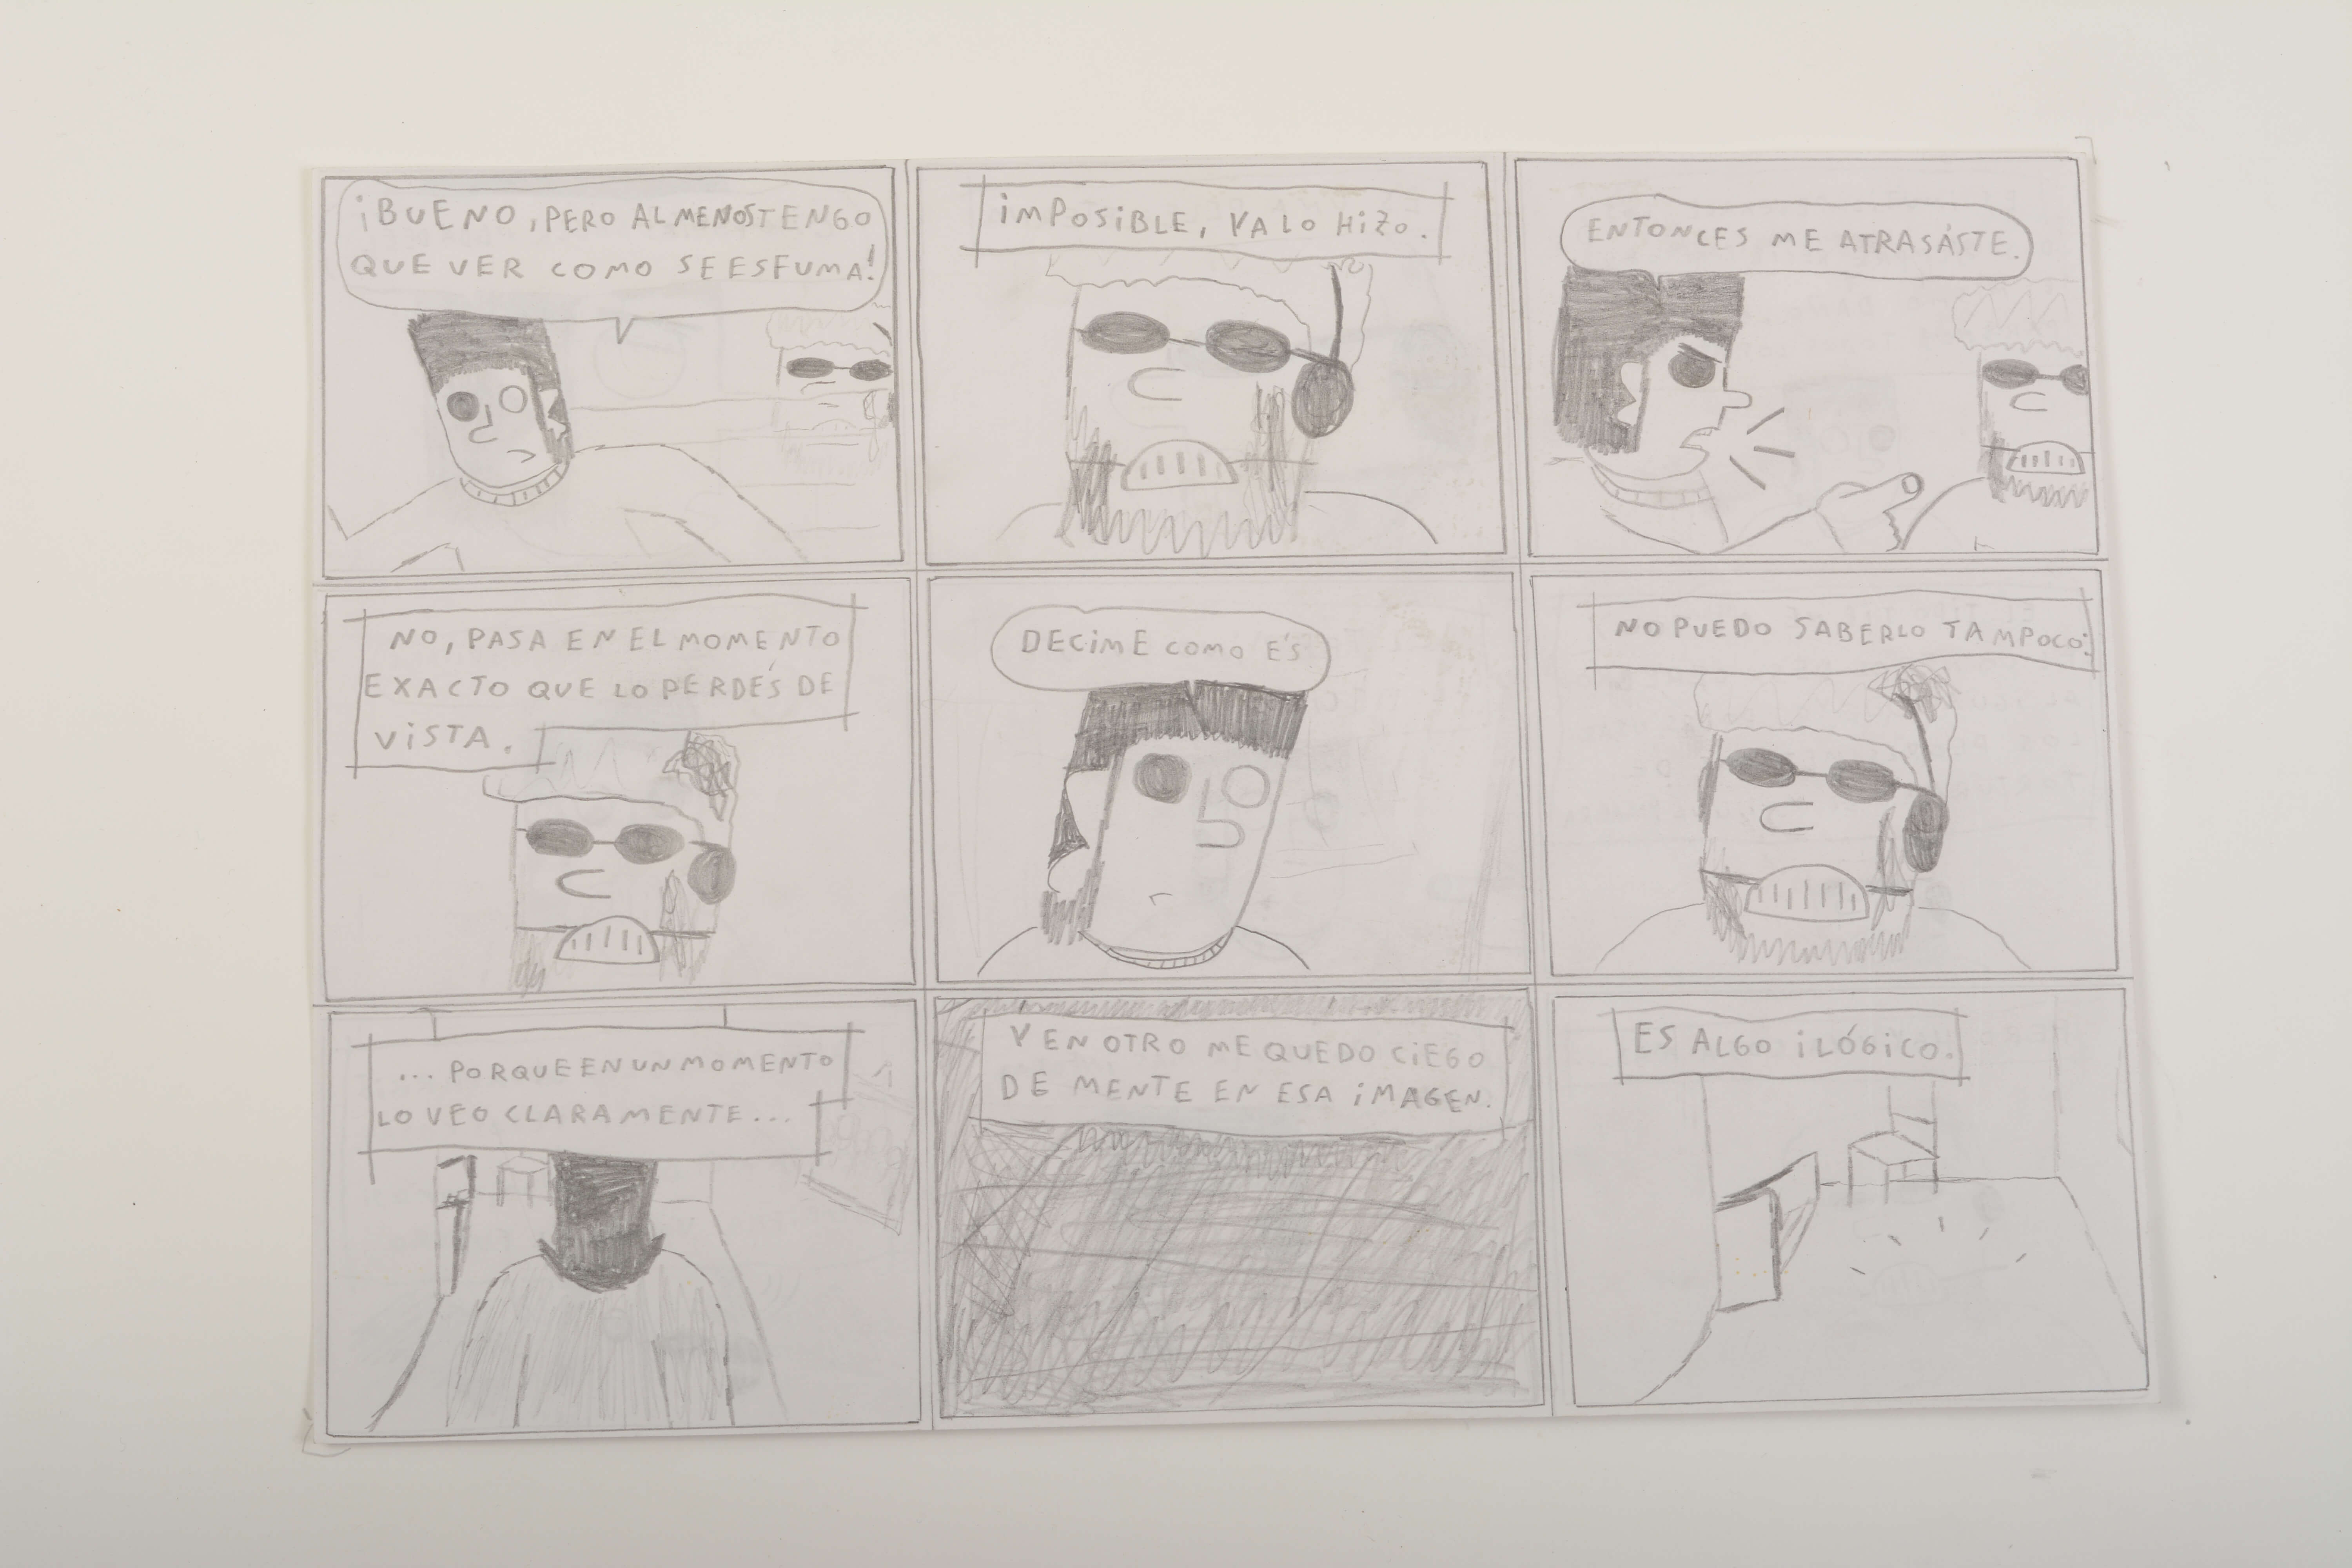 ¡BUENO, PERO AL MENOS TENGO
QUE VER COMO SE ESFUMA!
IMPOSIBLE, YA LO HIZO.
ENTONCES ME ATRASÁSTE.
NO, PASA EN EL MOMENTO
EXACTO QUE LO PERDÉS DE
VISTA.
DECIME COMO ES
NO PUEDO SABERLO TAMPOCO:
... PORQUE EN UN MOMENTO
LO VEO CLARAMENTE...
Y EN OTRO ME QUEDO CIEGO
DE MENTE EN ESA IMAGEN.
ES ALGO ILÓGICO.